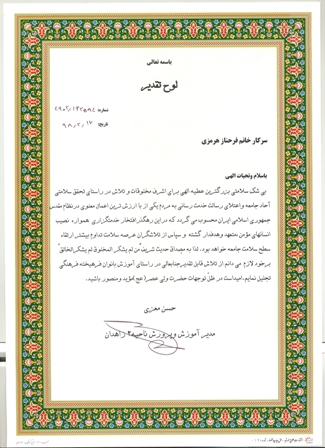 باسمه تعالی
لوح تقدیر
شماره:
تاریخ: ۹۸/۲/۱۷
سرکار خانم فرحناز هرمزی
باسلام وتحیات الهی
بی شک سلامتی بزرگترین عطیه الهی برای اشرف مخلوقات و تلاش در راستای تحقق سلامتی
آحاد جامعه واعتلای رسالت خدمت رسانی به مردم یکی از با ارزش ترین اعمال معنوی درنظام مقدس
جمهوری اسلامی ایران محسوب می گردد که در این رهگذر افتخار خدمتگزاری همواره نصیب
انسانهای مؤمن متعهد وهدفدار گشته و سپاس از تلاشگران عرصه سلامت تداوم بیشتر ارتقاء
سطح سلامت جامعه خواهد بود. لذا به مصداق حدیث شریف من لم یشکر المخلوق لم یشکر الخالق
برخود لازم می دانم از تلاش قابل تقدیر جنابعالی در راستای آموزش بانوان فرهیخته فرهنگی
تجلیل نمایم. امیداست در ظل توجهات حضرت ولی عصر(عج) مؤید و منصور باشید.
حسن معزی
مدیر آموزش و پرورش ناحیه ۲ زاهدان